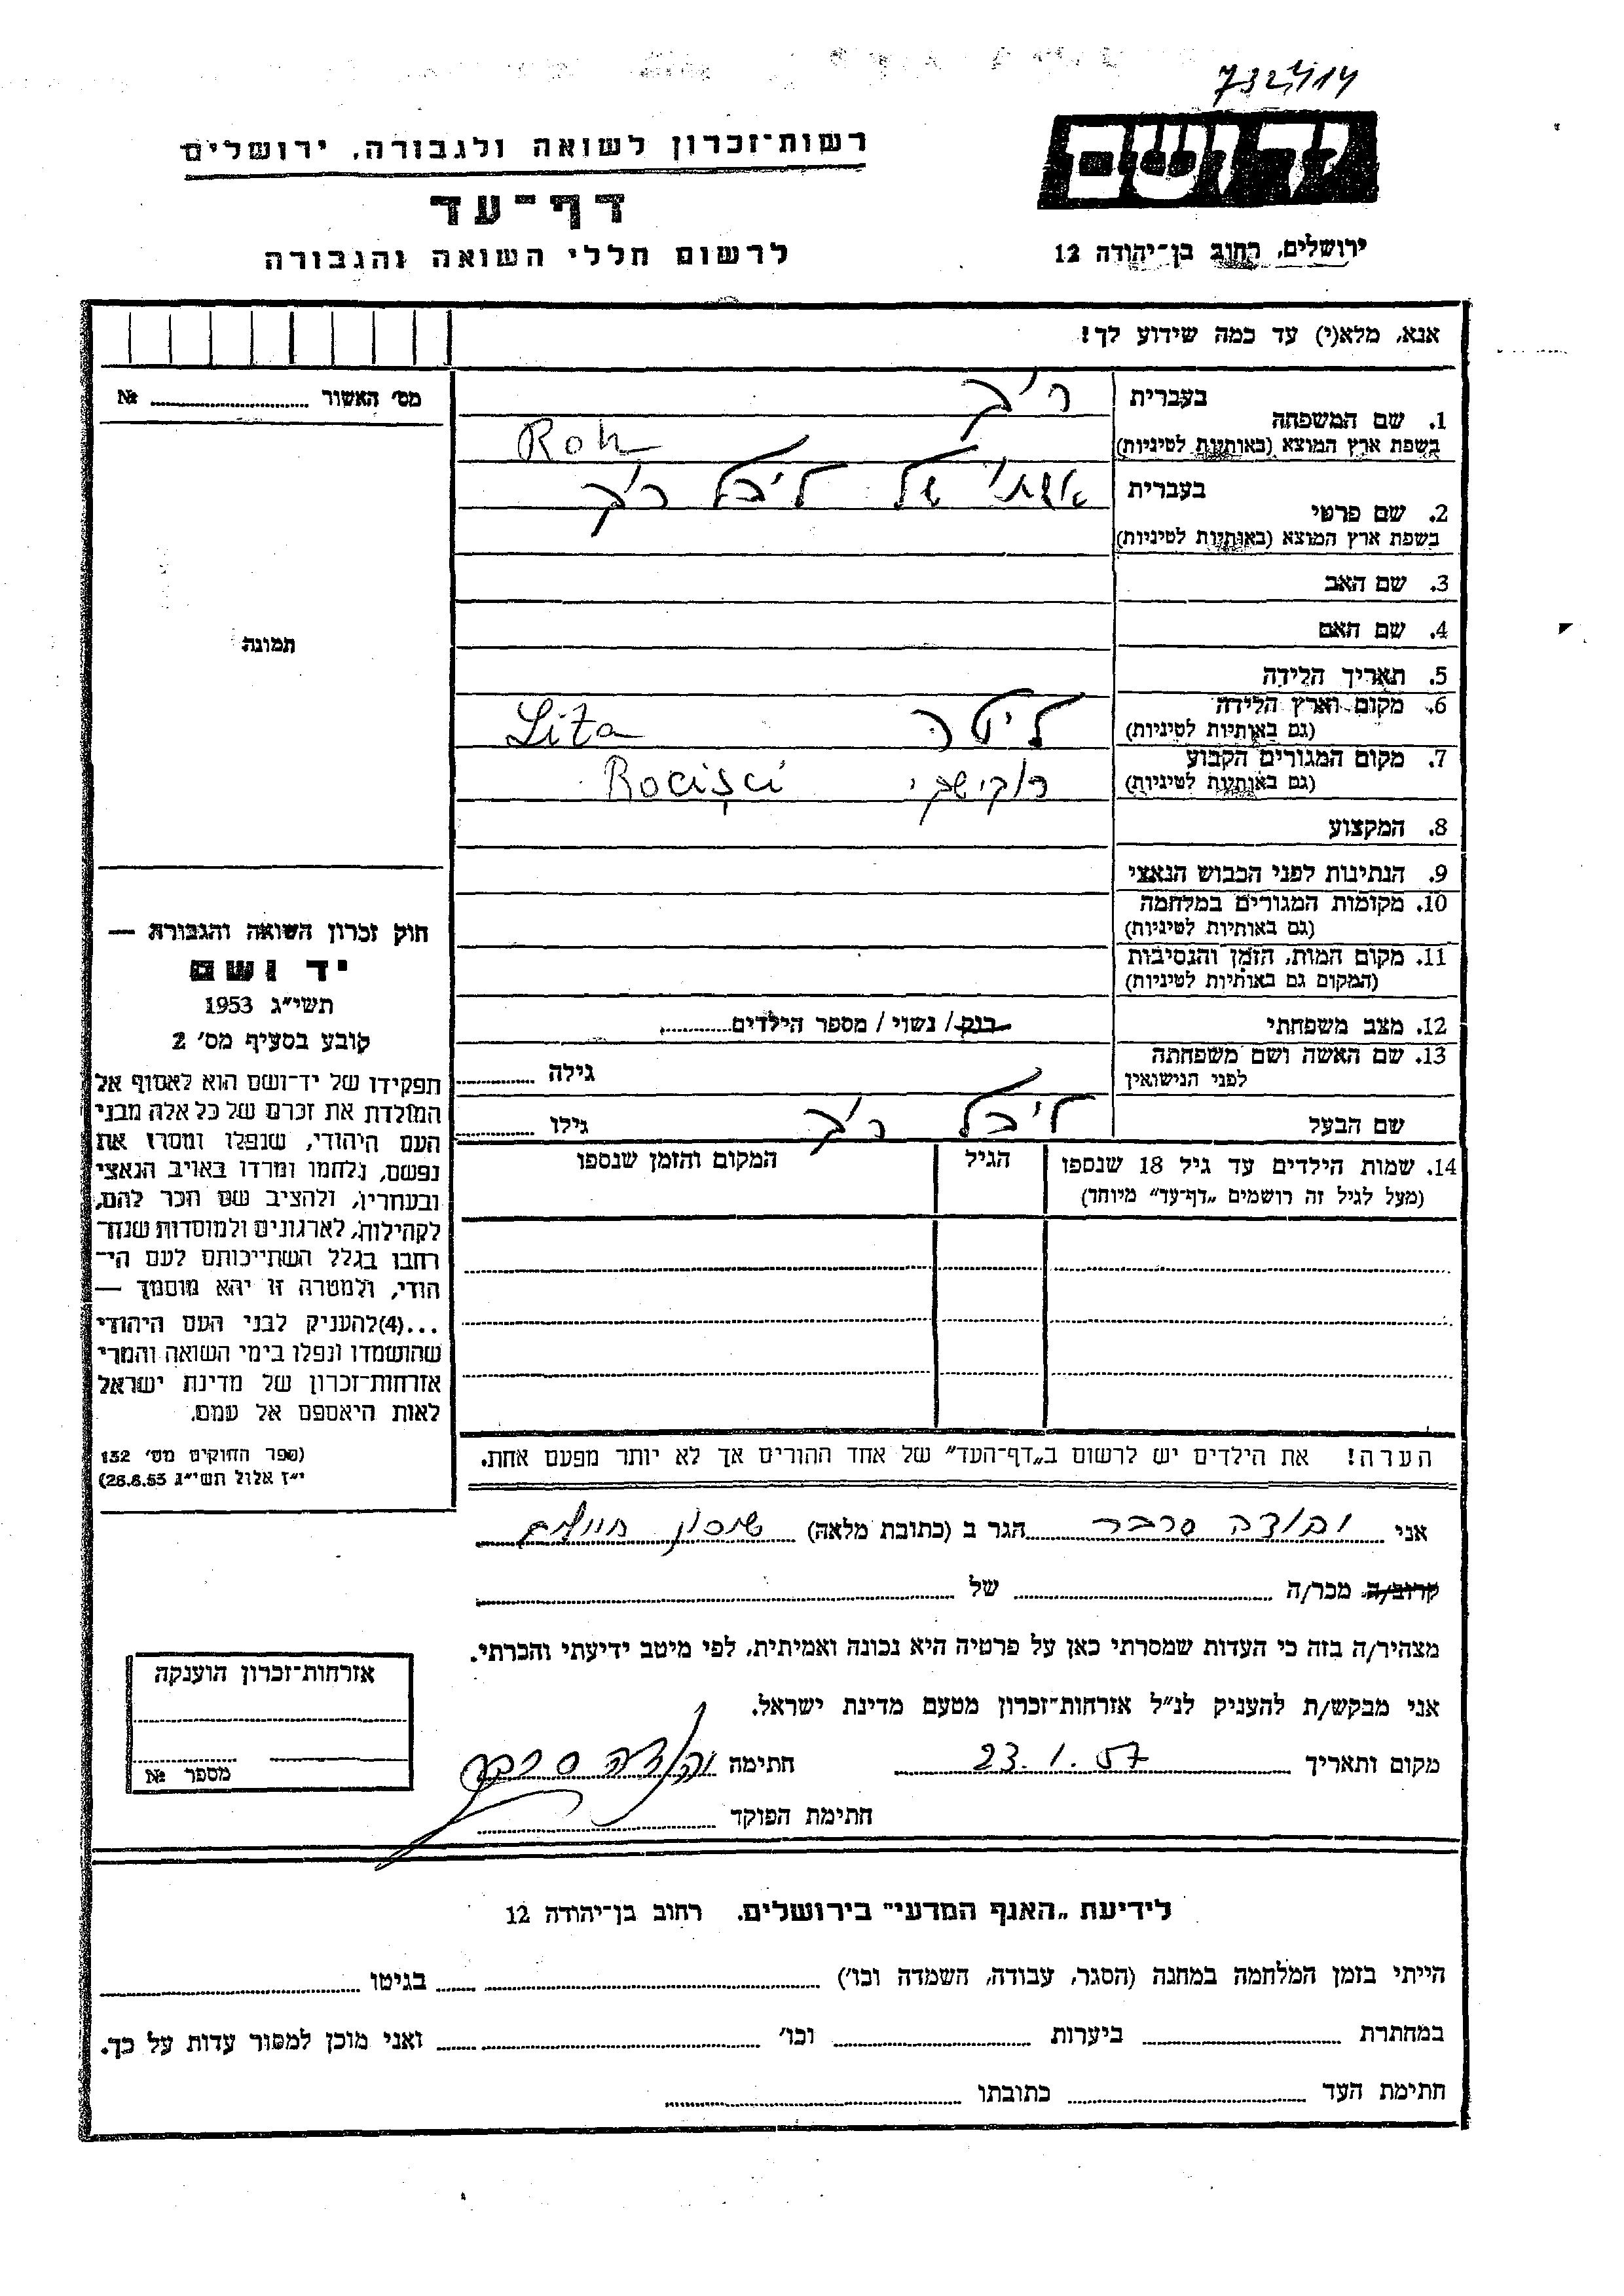 732/114
רשות־זכרון לשואה ולגבורה, ירושלים
יד ושם
דף־עד
לרשום חללי השואה והגבורה
ירושלים, רחוב בן־יהודה 12
אנא, מלא(י) עד כמה שידוע לך!
מס׳ האשור № 
1. שם המשפחה
בעברית
בשפת ארץ המוצא (באותיות לטיניות)
Roh
2. שם פרטי
בעברית אשתו של לייבל
בשפת ארץ המוצא (באותיות לטיניות)
3. שם האב
4. שם האם
תמונה
5. תאריך הלידה
6. מקום וארץ הלידה
(גם באותיות לטיניות)
ליטה Lita
7. מקום המגורים הקבוע
(גם באותיות לטיניות)
רוקישקי Rocişci
8. המקצוע
9. הנתינות לפני הכבוש הנאצי
10. מקומות המגורים במלחמה
(גם באותיות לטיניות)
11. מקום המות, הזמן והנסיבות
(המקום גם באותיות לטיניות)
12. מצב משפחתי רוק / נשוי / מספר הילדים
13. שם האשה ושם משפחתה
לפני הנישואין
גילה
שם הבעל לייבל
גילו
14. שמות הילדים עד גיל 18 שנספו
(מעל לגיל זה רושמים „דף־עד״ מיוחד)
הגיל
המקום והזמן שנספו
חוק זכרון השואה והגבורה —
יד ושם
תשי״ג 1953
קובע בסעיף מס׳ 2
תפקידו של יד־ושם הוא לאסוף אל
המולדת את זכרם של כל אלה מבני
העם היהודי, שנפלו ומסרו את
נפשם, נלחמו ומרדו באויב הנאצי
ובעוזריו, ולהציב שם וזכר להם,
לקהילות, לארגונים ולמוסדות שנח־
רבו בגלל השתייכותם לעם הי־
הודי, ולמטרה זו יהא מוסמך —
...(4)להעניק לבני העם היהודי
שהושמדו ונפלו בימי השואה והמרי
אזרחות־זכרון של מדינת ישראל
לאות היאספם אל עמם.
(ספר החוקים מס׳ 132
י״ז אלול תשי״ג 28.8.53)
הערה! את הילדים יש לרשום ב„דף־העד״ של אחד ההורים אך לא יותר מפעם אחת.
אני יהודה הגר ב (כתובת מלאה) שיכון
קרוב/ה מכר/ה של
מצהיר/ה בזה כי העדות שמסרתי כאן על פרטיה היא נכונה ואמיתית, לפי מיטב ידיעתי והכרתי.
אני מבקש/ת להעניק לנ״ל אזרחות־זכרון מטעם מדינת ישראל.
מקום ותאריך 23.1.57 חתימה יהודה
חתימת הפוקד
אזרחות־זכרון הוענקה
מספר №
לידיעת „האגף המדעי״ בירושלים, רחוב בן־יהודה 12
הייתי בזמן המלחמה במחנה (הסגר, עבודה, השמדה וכו׳) בגיטו
במחתרת ביערות וכו׳ ואני מוכן למסור עדות על כך.
חתימת העד כתובתו